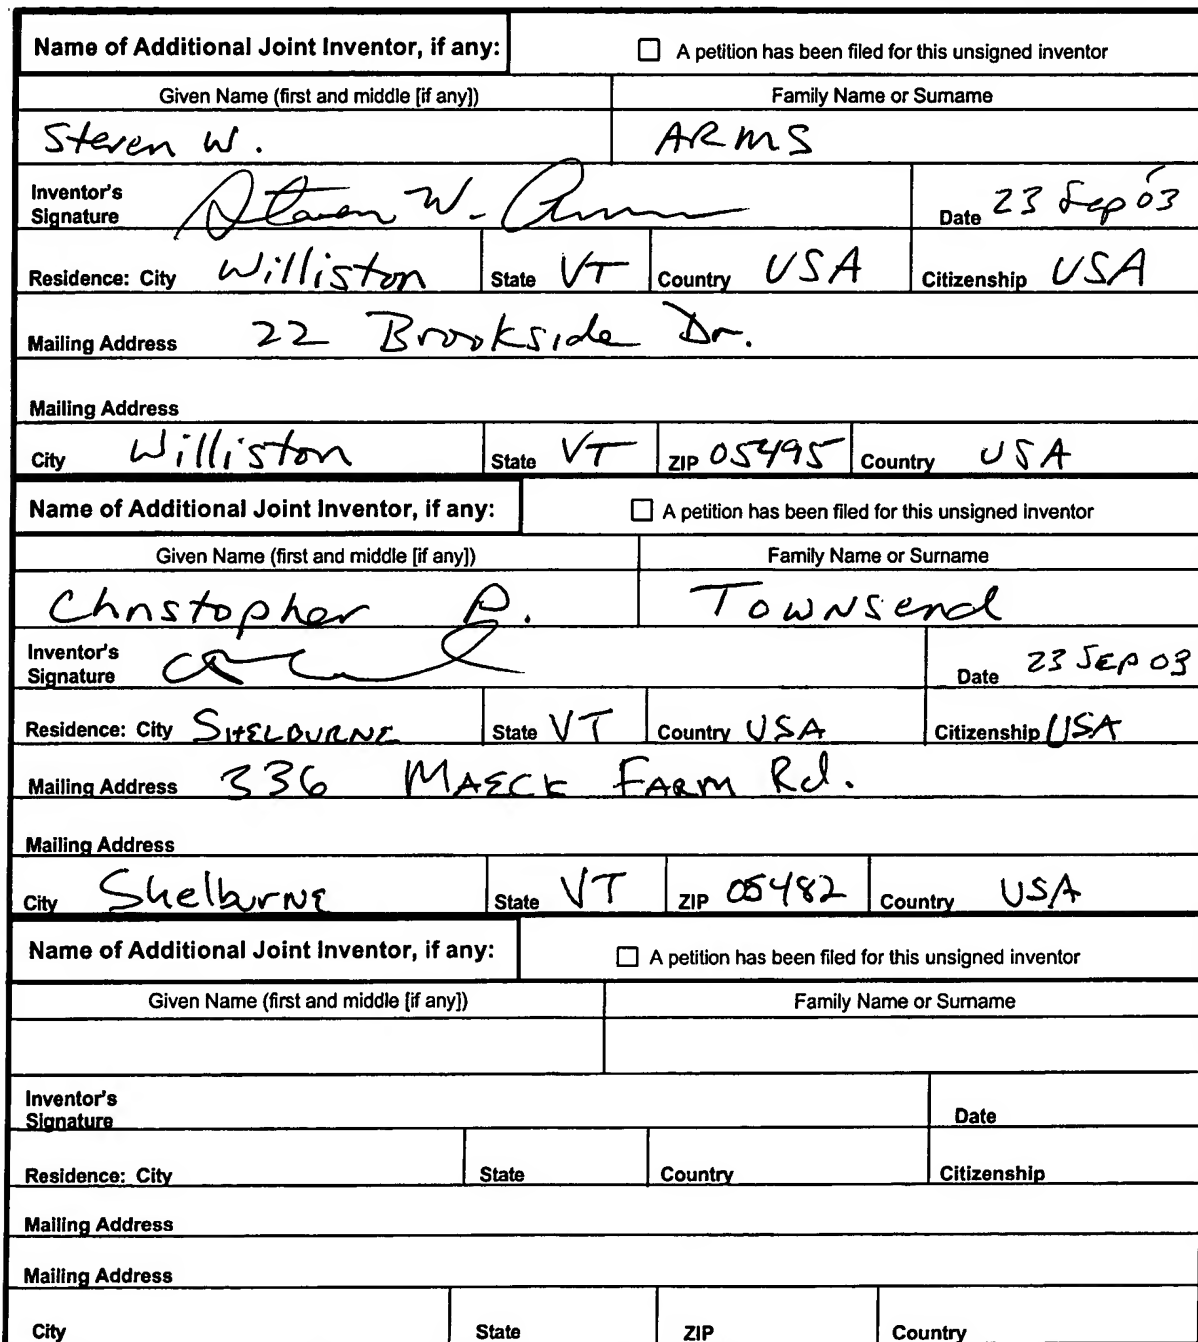 Name of Additional Joint Inventor, if any: A petition has been filed for this unsigned inventor
Given Name (first and middle [if any]) Family Name or Surname
Steven W. ARMS
Inventor's
Signature Steven W. Arms Date 23 Sep 03
Residence: City Williston State VT Country USA Citizenship USA
Mailing Address 22 Brookside Dr.
Mailing Address
City Williston State VT ZIP 05495 Country USA
Name of Additional Joint Inventor, if any: A petition has been filed for this unsigned inventor
Given Name (first and middle [if any]) Family Name or Surname
Christopher P. Townsend
Inventor's
Signature Date 23 SEP 03
Residence: City SHELBURNE State VT Country USA Citizenship USA
Mailing Address 336 MAECK FARM Rd.
Mailing Address
City Shelburne State VT ZIP 05482 Country USA
Name of Additional Joint Inventor, if any: A petition has been filed for this unsigned inventor
Given Name (first and middle [if any]) Family Name or Surname
Inventor's
Signature Date
Residence: City State Country Citizenship
Mailing Address
Mailing Address
City State ZIP Country